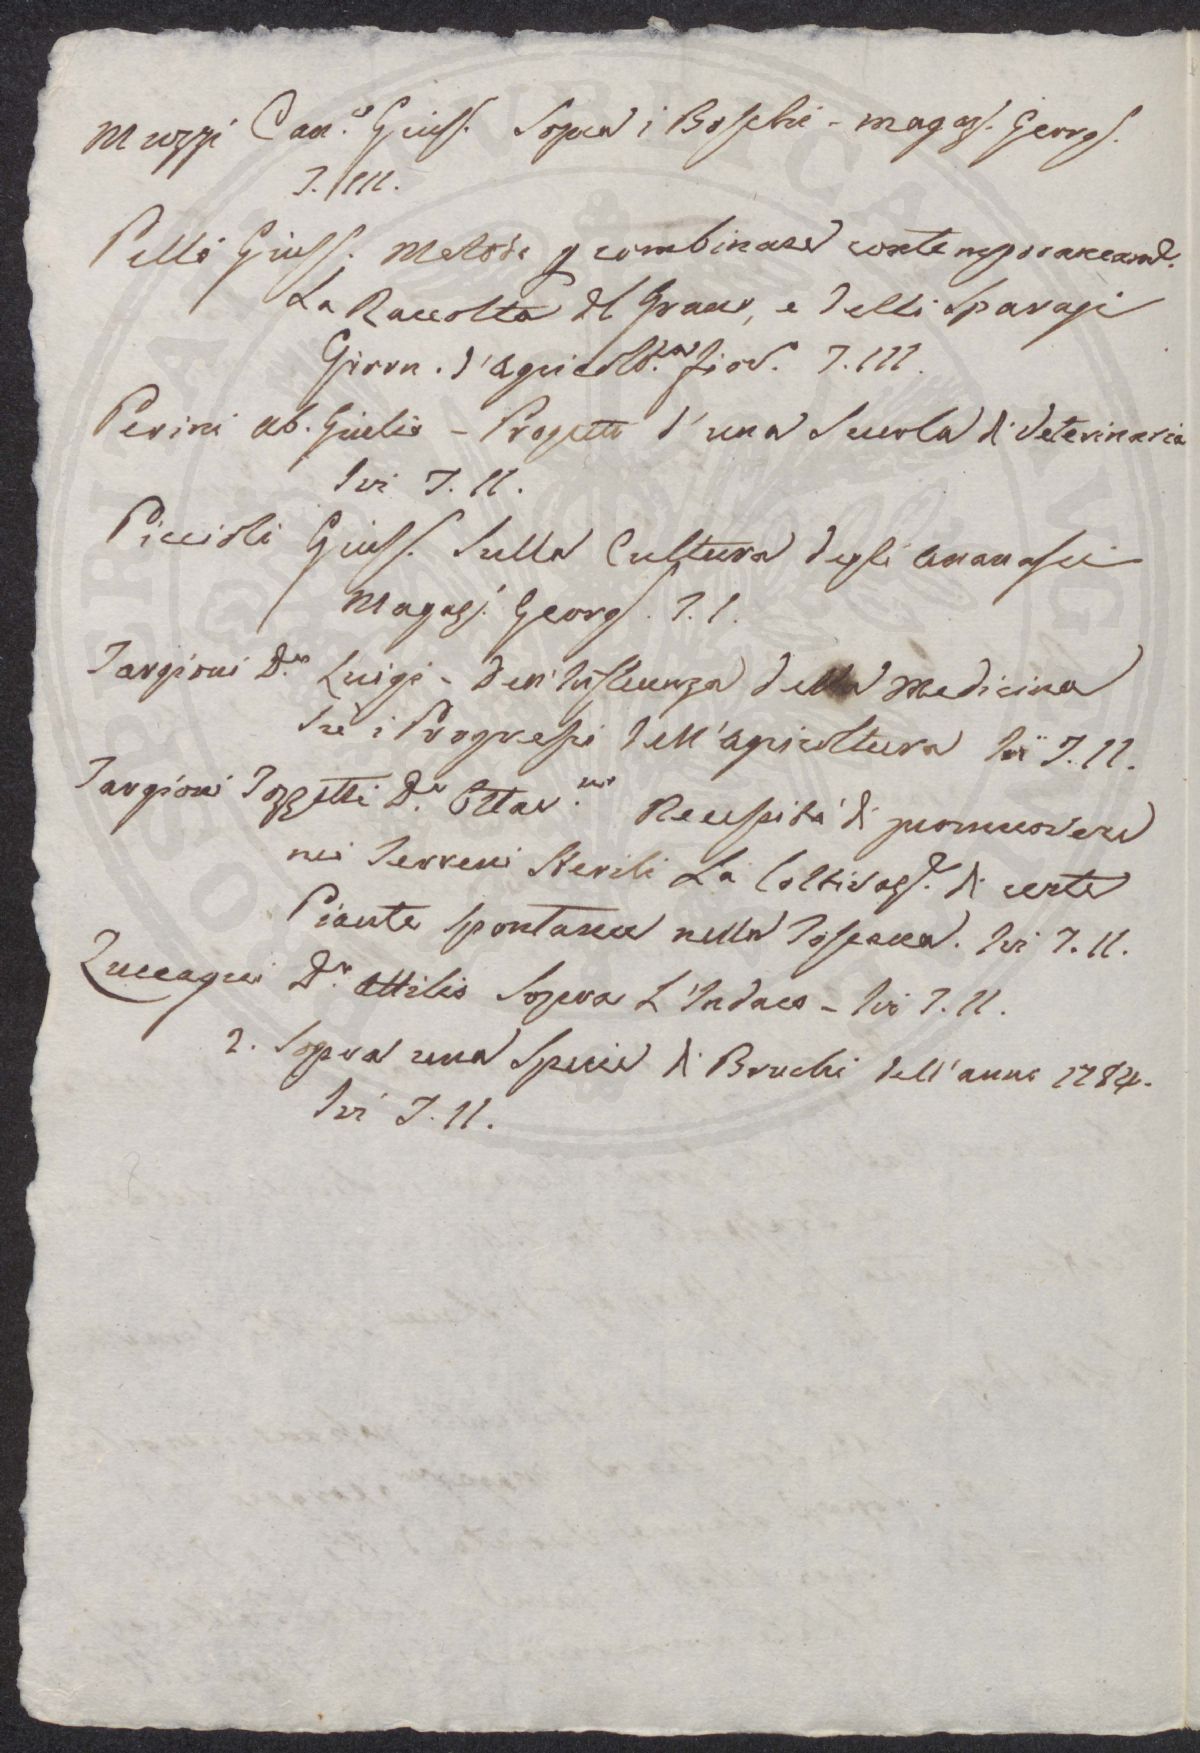 Muzzi Can.co Giuss. Sopra i Boschi - Magaz. Georg.
T. III.
Pelli Giuss. Metodo p combinare contemporaneamte.
La Raccolta del Grano, e delli Sparagi
Giorn. d'Agricolt.ra Fior.o T. III.
Perini Ab. Giulio - Progetto d'una Scuola di Veterinaria
Ivi T. II.
Piccioli Giuss. Sulla Cultura degli Ananassi
Magaz. Georg. T. I.
Targioni D.r Luigi - Dell'Influenza della Medicina
Su i Progressi dell'Agricoltura Ivi T. II.
Targioni Tozzetti D.r Ottav.no Necessità di promuovere
nei Terreni Sterili La Coltivaz.e di certe
Piante spontanee nella Toscana. Ivi T. II.
Zuccagni D.r Attilio Sopra L'Indaco - Ivi T. II.
2. Sopra una Specie di Bruchi dell'anno 1784.
Ivi T. II.